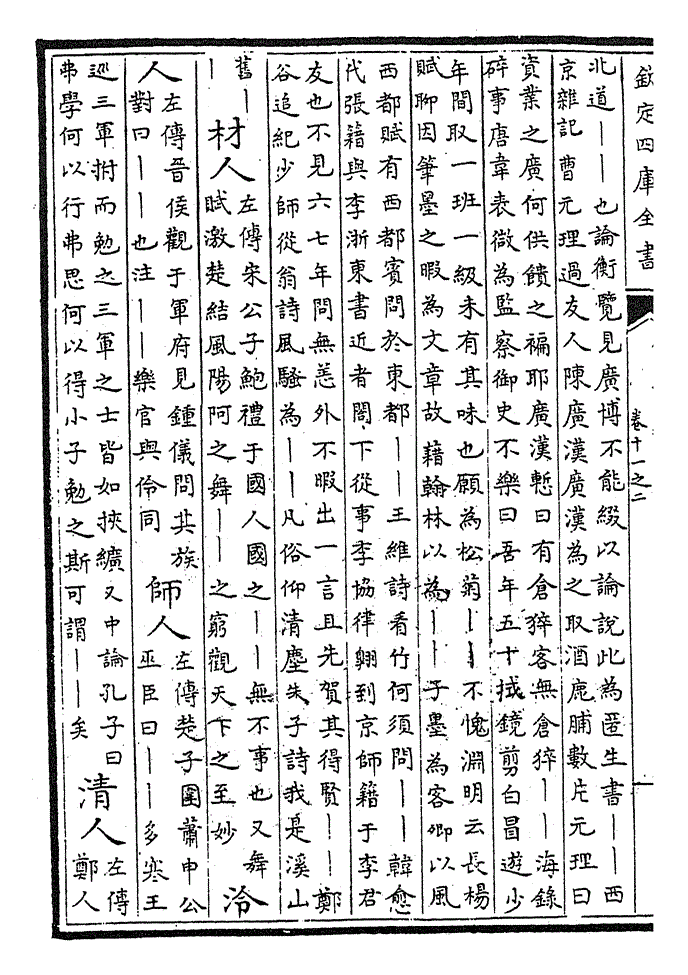 欽定四庫全書
卷十一之二
北道——也論衡覽見廣博不能綴以論說此為匿生書——西
京雜記曹元理過友人陳廣漢廣漢為之取酒鹿脯數片元理曰
資業之廣何供饋之褊耶廣漢慙曰有倉猝客無倉猝——海錄
碎事唐韋表微為監察御史不樂曰吾年五十拭鏡剪白冒遊少
年間取一班一級未有其味也願為松菊——不愧淵明云長楊
賦聊因筆墨之暇為文章故藉翰林以為——子墨為客卿以風
西都賦有西都賓問於東都——王維詩看竹何須問——韓愈
代張籍與李浙東書近者閤下從事李協律翺到京師籍于李君
友也不見六七年問無恙外不暇出一言且先賀其得賢——鄭
谷追紀少師從翁詩風騷為——凡俗仰清塵朱子詩我是溪山
舊—
—
材人
左傳宋公子鮑禮于國人國之——無不事也又舞
賦激楚結風陽阿之舞——之窮觀天下之至妙
泠
人
左傳晉侯觀于軍府見鍾儀問其族
對曰——也注——樂官與伶同
師人
左傳楚子圍蕭申公
巫臣曰——多寒王
巡三軍拊而勉之三軍之士皆如挾纊又中論孔子曰
弗學何以行弗思何以得小子勉之斯可謂——矣
清人
左傳
鄭人